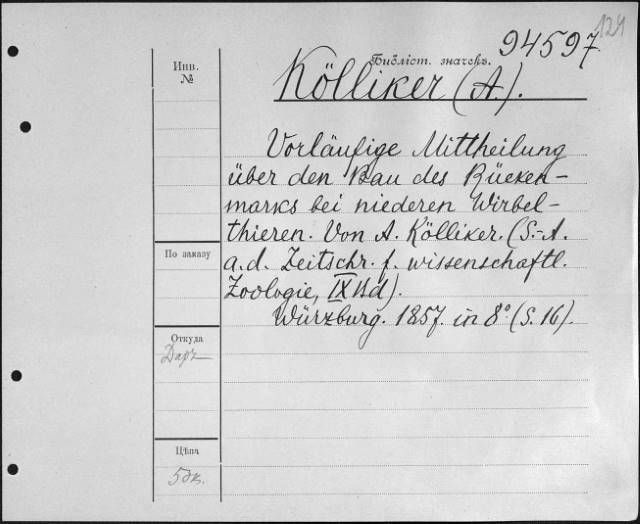 124
94597
Инв.
№
Библіот. значекъ.
Kölliker (A.).
Vorläufige Mittheilung
über den Bau des Rücken-
marks bei niederen Wirbel-
thieren. Von A. Kölliker. (S.-A.
a. d. Zeitschr. f. wissenschaftl.
Zoologie, IX Bd).
Würzburg. 1857. in 8° (S. 16).
По заказу
Откуда
Даръ
Цѣна